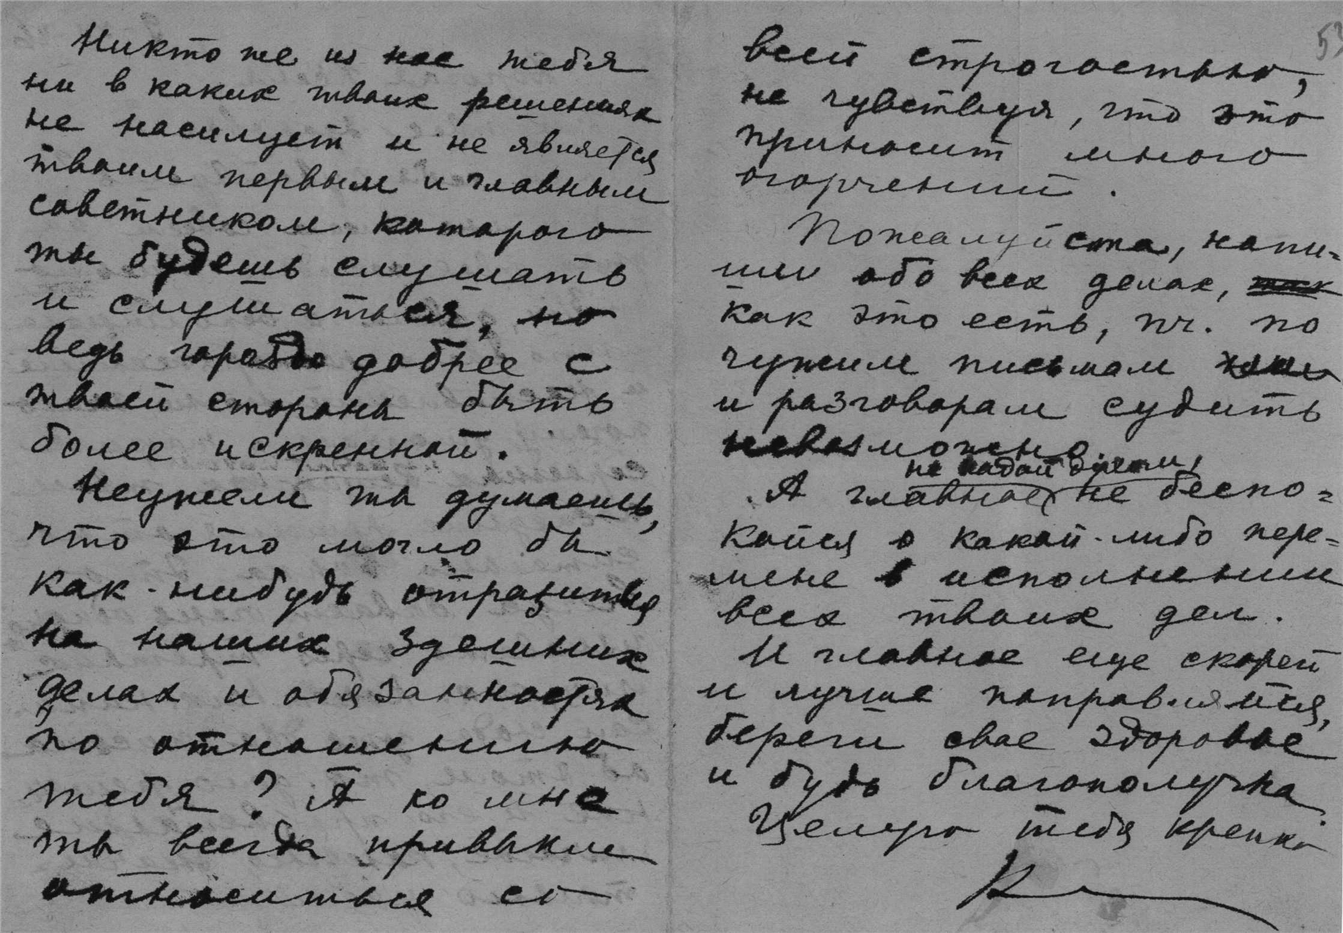 Никто же из нас тебя
ни в каких твоих решениях
не насилует и не является
твоим первым и главным
советником, которого
ты будешь слушать
и слушаться, но
ведь гораздо добрее с
твоей стороны быть
более искренной.
Неужели ты думаешь,
что это могло бы
как-нибудь отразиться
на наших здешних
делах и обязанностях
по отношению
тебя? А ко мне
ты всегда привыкла
относиться со
53
всей строгостью,
не чувствуя, что это
приносит много
огорчений.
Пожалуйста, напи-
ши обо всех делах,
как это есть, пч. по
чужим письмам
и разговорам судить
невозможно.
не надо
А главное, не беспо-
койся о какой-либо пере-
мене в исполнении
всех твоих дел.
И главное еще скорей
и лучше поправляйся,
береги свое здоровье
и будь благополучна.
Целую тебя крепко
К